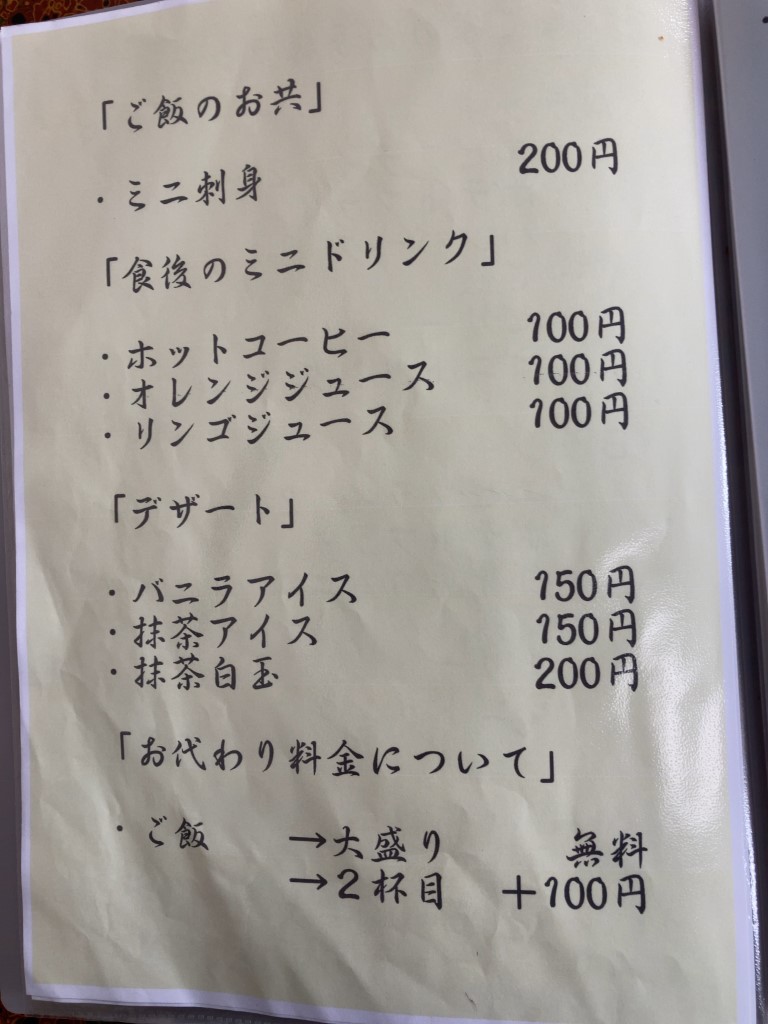 「ご飯のお共」
・ミニ刺身 200円
「食後のミニドリンク」
・ホットコーヒー 100円
・オレンジジュース 100円
・リンゴジュース 100円
「デザート」
・バニラアイス 150円
・抹茶アイス 150円
・抹茶白玉 200円
「お代わり料金について」
・ご飯 →大盛り 無料
→2杯目 +100円